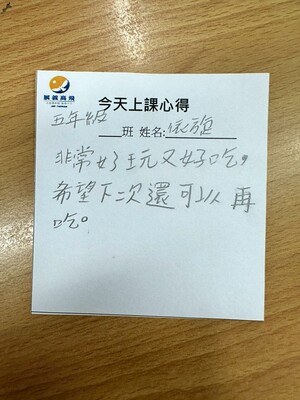 展翼高飛
今天上課心得
五年級
___班 姓名:依璇
非常好玩又好吃,
希望下次還可以再
吃。